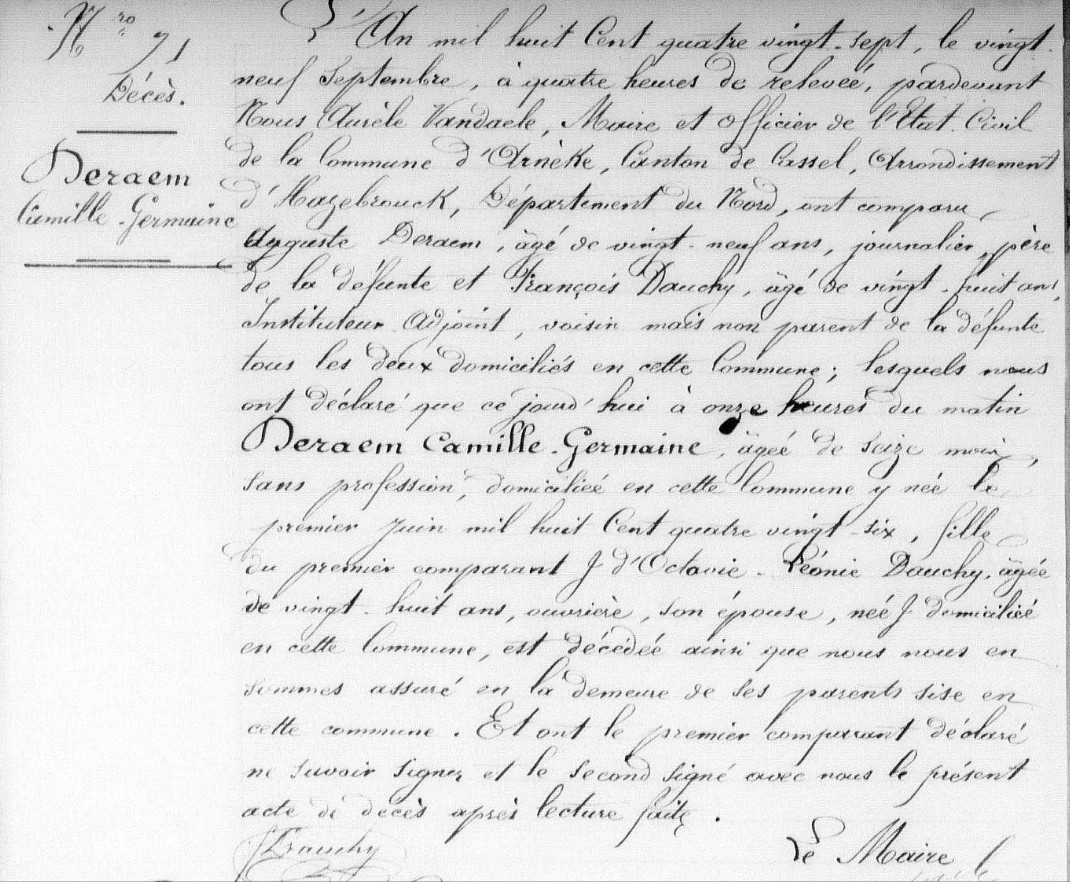 Nro 71
Décès.
Deraem
Camille-Germaine
L'An mil huit Cent quatre vingt-sept, le vingt-
neuf Septembre, à quatre heures de relevée, pardevant
Nous Aurèle Vandaele, Maire et Officier de l'Etat-Civil
de la Commune d'Arnèke, Canton de Cassel, Arrondissement
d'Hazebrouck, Département du Nord, ont comparu
Auguste Deraem, âgé de vingt-neuf ans, journalier, père
de la défunte et François Dauchy, âgé de vingt-huit ans,
Instituteur Adjoint, voisin mais non parent de la défunte
tous les deux domiciliés en cette Commune; lesquels nous
ont déclaré que ce jourd'hui à onze heures du matin
Deraem Camille-Germaine, âgée de seize mois,
sans profession, domiciliée en cette Commune y née le
premier Juin mil huit Cent quatre vingt-six, fille
du premier comparant & d'Octavie-Léonie Dauchy, âgée
de vingt-huit ans, ouvrière, son épouse, née & domiciliée
en cette Commune, est décédée ainsi que nous nous en
sommes assuré en la demeure de ses parents sise en
cette commune. Et ont le premier comparant déclaré
ne savoir signer et le second signé avec nous le présent
acte de décès après lecture faite.
F Dauchy
Le Maire